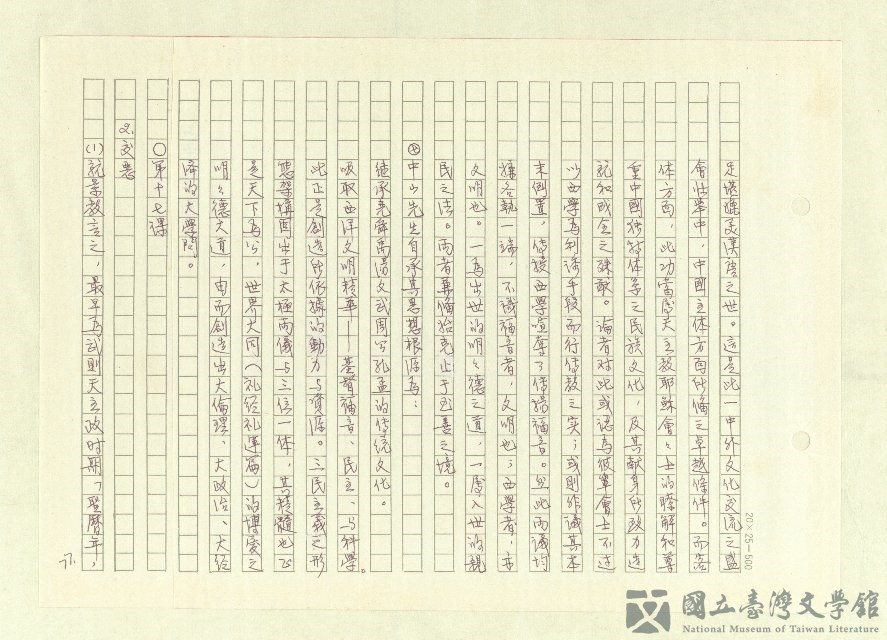 足堪媲美漢唐之世。這是此一中外文化交流之盛
會壯舉中,中國主体方面所備之卓越條件。而客
体方面,此功當屬天主教耶穌會會士的瞭解和尊
重中國獨特体系之民族文化,及其獻身所致力造
就和成全之殊歊。論者对此或認為彼輩會士不過
以西學為利誘手段而行傳教之实;或則作議其本
末倒置,傳授西學喧奪了傳揚福音。然此兩議均
據各執一端,不識福音者,文明也;西學者,亦
文明也。一為出世的明明德之道,一屬入世的親
民之法。兩者兼備始克止于至善之境。
㊉中山先生自承其思想根源為:
繼承堯舜禹湯文武周公孔孟的傳統文化。
吸取西洋文明精華——基督福音、民主、与科學。
此正是創造所依據的動力与資源。三民主義之形
態架構再出于太極兩儀与三位一体,其精髓也正
是天下為公,世界大同(礼經礼運篇)的博愛之
明明德大道,由而創造出大倫理、大政治、大經
濟的大學問。
○第十七課
2.交惡
(1)就景教言之,最早為武則天主政时期「聖曆年,
77.
20×25=500
國立臺灣文學館
National Museum of Taiwan Literature